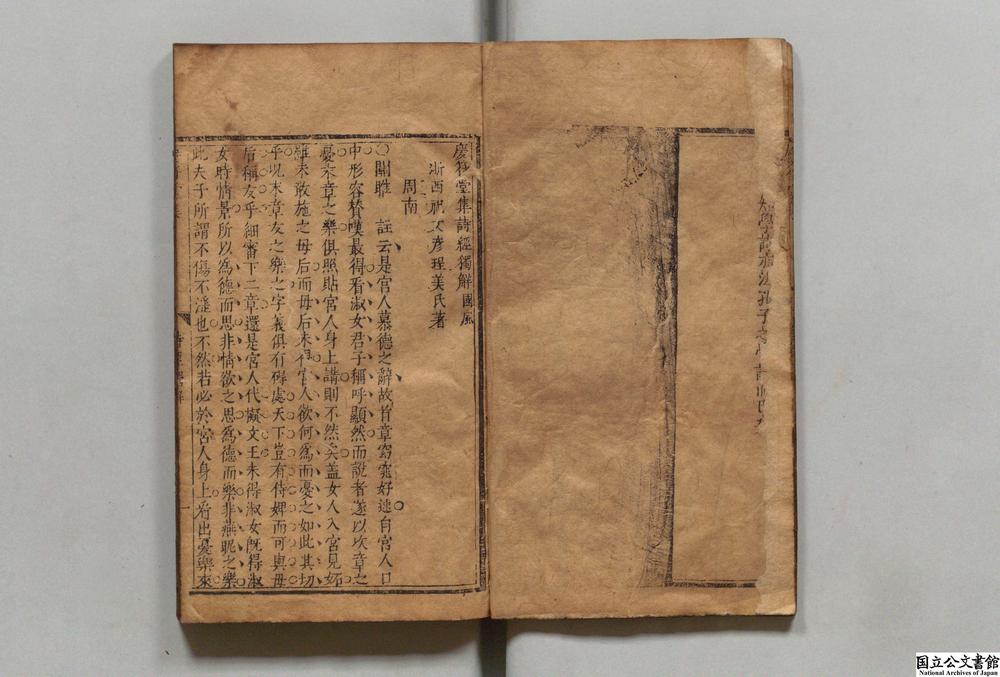 慶符堂集詩經獨解國風
浙西祝文彦珵美氏著
周南
〇關雎 註云是宮人慕德之辭故首章窈窕好逑自宮人口
中形容贊嘆最得看淑女君子稱呼顯然而說者遂以次章之
憂卒章之樂俱照貼宮人身上講則不然矣蓋女人入宮見妬
雖未敢施之母后而母后未 宮人欲何爲而憂之如此其切
乎以末章友之樂之字義俱有碍處天下豈有侍婢而可與母
后稱友乎細審下二章還是宮人代擬文王未得淑女旣得淑
女時情景所以爲德而思非情欲之思爲德而樂非燕昵之樂
此夫子所謂不傷不淫也不然若必於宮人身上看出憂樂來
一
国立公文書館
National Archives of Japan